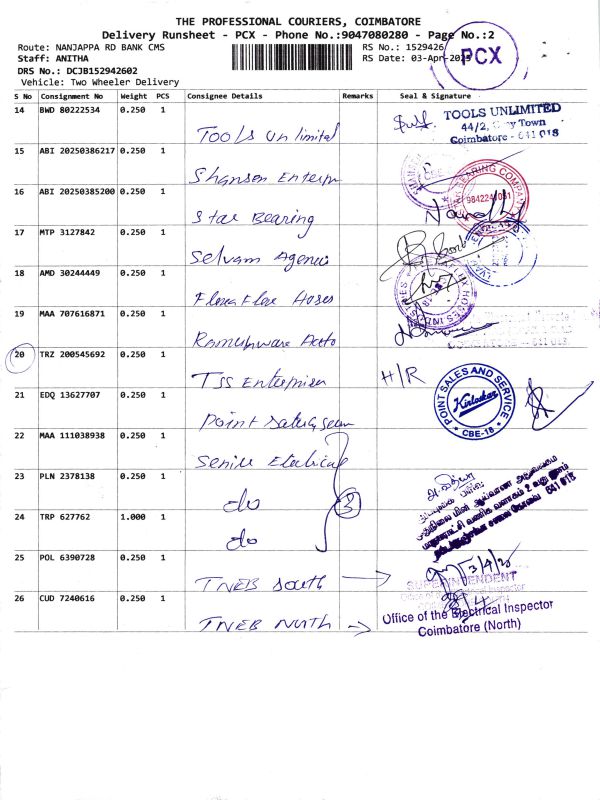 THE PROFESSIONAL COURIERS, COIMBATORE
Delivery Runsheet - PCX - Phone No.:9047080280 - Page No.:2
Route: NANJAPPA RD BANK CMS
RS No.: 1529426
Staff: ANITHA
RS Date: 03-Apr-2025
PCX
DRS No.: DCJB152942602
Vehicle: Two Wheeler Delivery
S No Consignment No Weight PCS Consignee Details Remarks Seal & Signature
14 BWD 80222534 0.250 1
Tools Unlimital
TOOLS UNLIMITED
44/2, Town
Coimbatore - 641 018
15 ABI 20250386217 0.250 1
Shansen Enterpn
16 ABI 20250385200 0.250 1
Star Bearing
BEARING COMPANY
17 MTP 3127842 0.250 1
Selvam Agencies
18 AMD 30244449 0.250 1
Flexaflex Hoses
19 MAA 707616871 0.250 1
Rameshware Auto
20 TRZ 200545692 0.250 1
TSS Enterprises
H/R
21 EDQ 13627707 0.250 1
Point Sales
POINT SALES AND SERVICE
Kirloskar
CBE-18
22 MAA 111038938 0.250 1
Senice Electrical
23 PLN 2378138 0.250 1
do
3
24 TRP 627762 1.000 1
do
641 018
25 POL 6390728 0.250 1
TNEB South
3/4/25
SUPERINTENDENT
26 CUD 7240616 0.250 1
TNEB North
Office of the Electrical Inspector
Coimbatore (North)